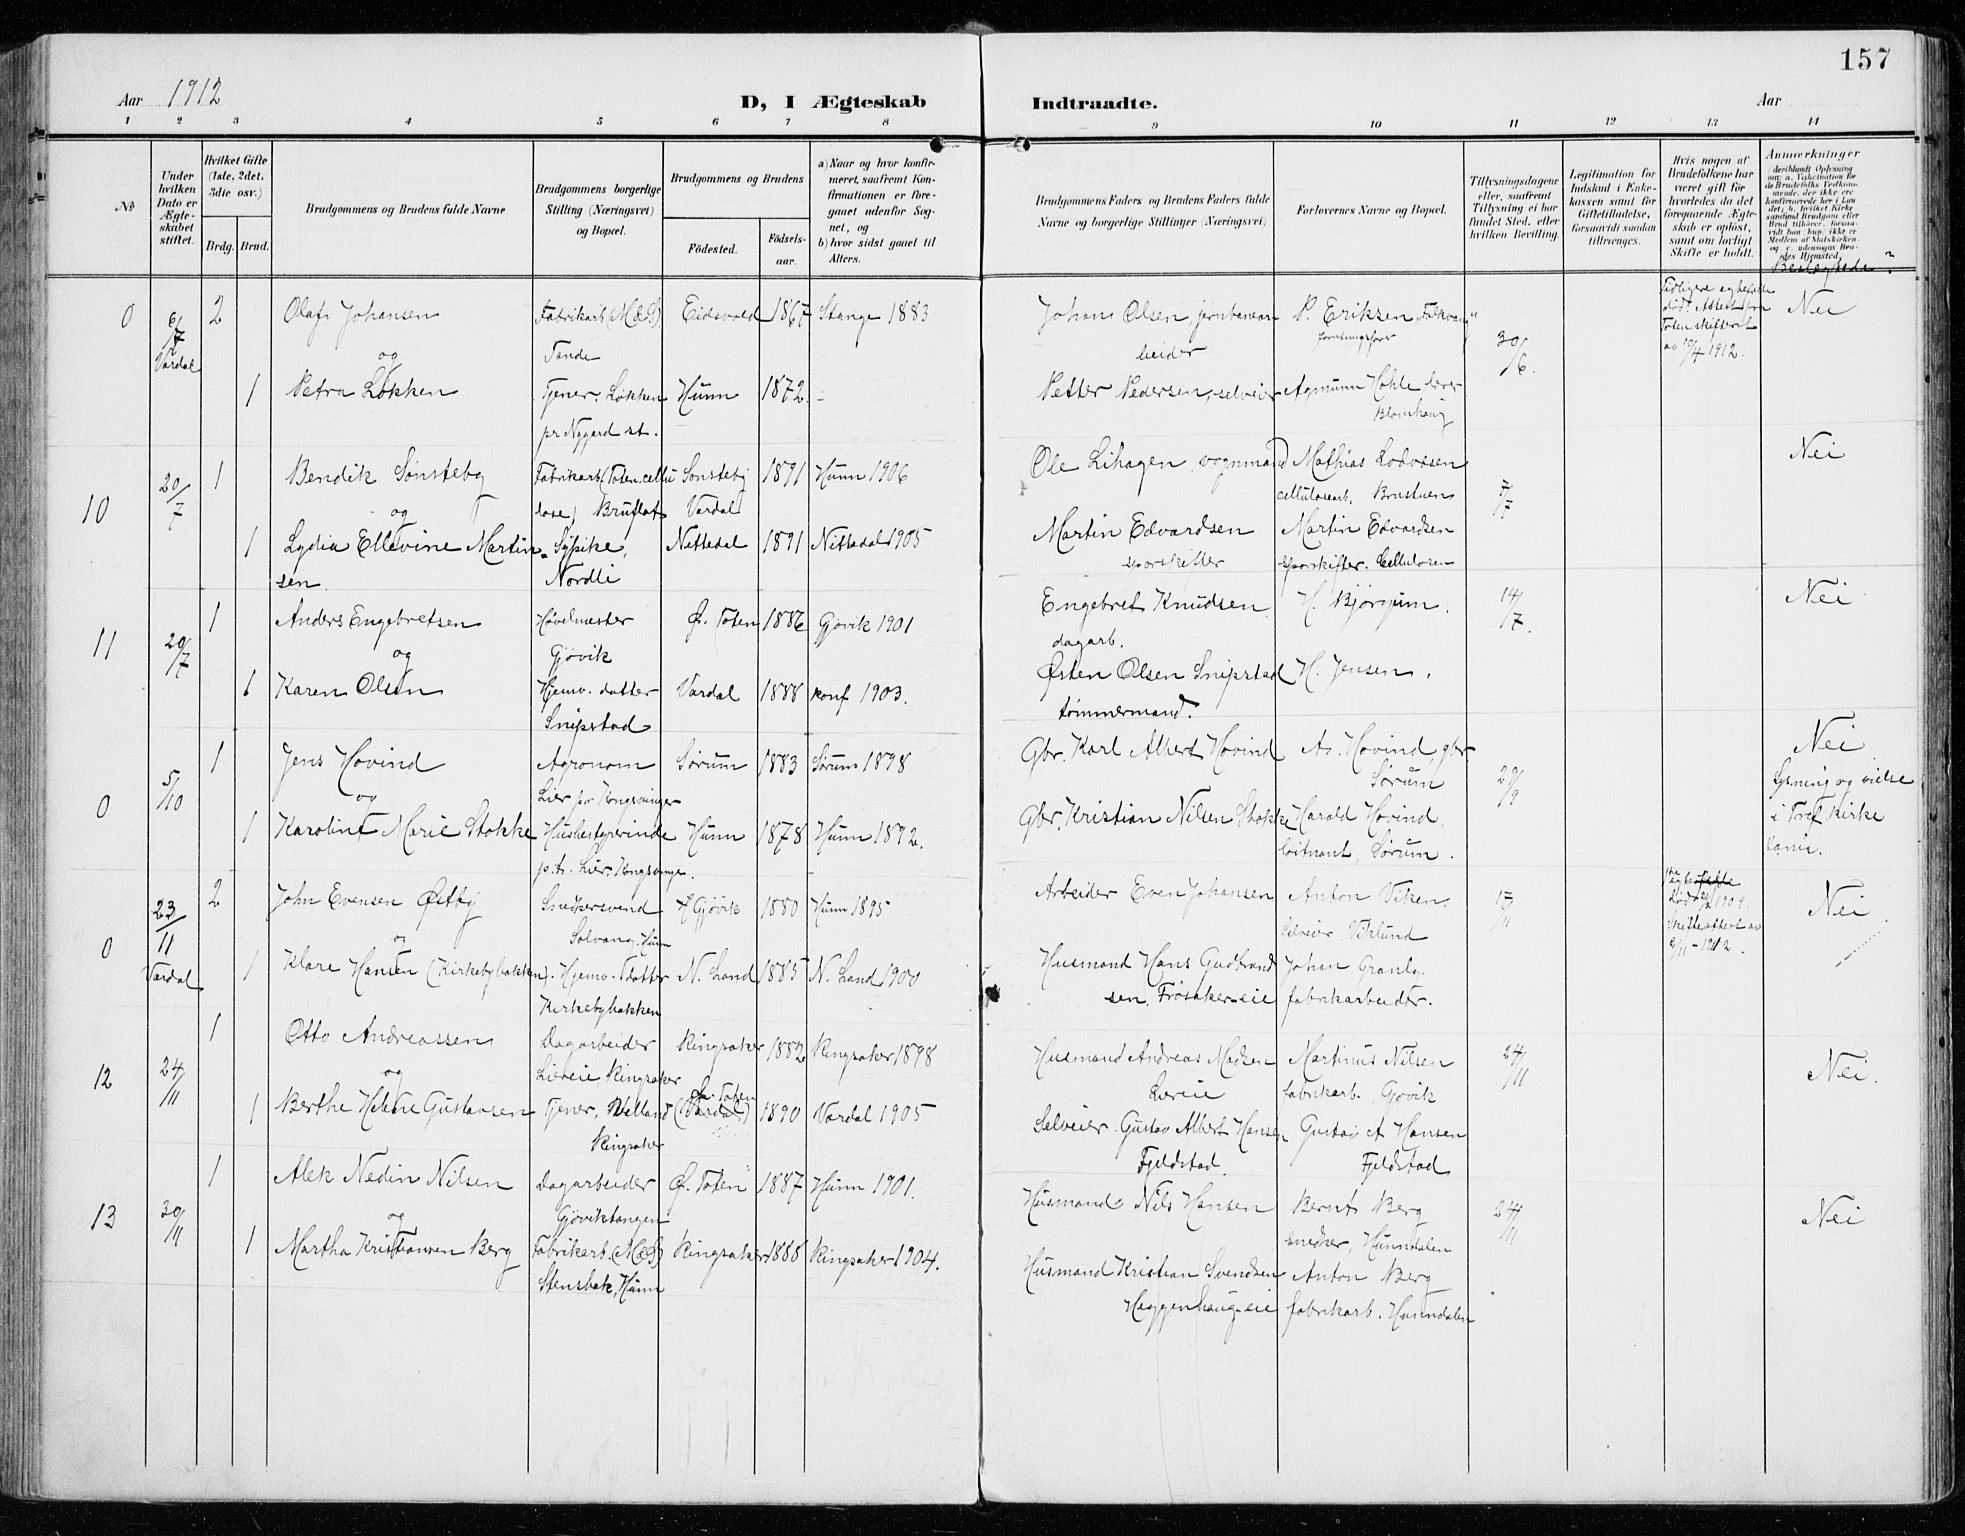 157
Aar 1912
D, I Ægteskab Indtraadte.
Aar
1 2 3 4 5 6 7 8 9 10 11 12 13 14
No.
Under hvilken Dato er Ægteskabet stiftet.
Hvilket Gifte (1ste, 2det, 3die osv.)
Brdg. Brud.
Brudgommens og Brudens fulde Navne
Brudgommens borgerlige Stilling (Næringsvei) og Bopæl.
Brudgommens og Brudens
Födested.
Födselsaar.
a) Naar og hvor konfirmeret, saafremt Konfirmationen er foregaaet udenfor Sognet, og
b) hvor sidst gaaet til Alters.
Brudgommens Faders og Brudens Faders fulde Navne og borgerlige Stillinger (Næringsvei)
Forlovernes Navne og Bopæl.
Tillysningsdagene eller, saafremt Tillysning ei har fundet Sted, efter hvilken Bevilling.
Legitimation for Indskud i Enkekassen samt for Giftetilladelse, forsaavidt saadan tiltrænges.
Hvis nogen af Brudefolkene har været gift før hvorledes da det foregaaende Ægteskab er opløst, samt om lovligt Skifte er holdt.
Anmærkninger
Beslægtede?
0 6/7 Vardal 2 Olaf Johansen Fabrikarb. (M&S) Tande Eidsvold 1867 Stange 1883 Johans Olsen, jernbanearbeider P. Eriksen "Folkvang" forretningsfører 30/6. Nei
av 10/4 1912.
og
1 Petra Løkken Tjener. Løkken pr Nygard st. Hunn 1872 - Petter Pedersen, selveier Agmunn Hohle lærer Blomhaug
10 20/7 1 Bendik Sønsteby Fabrikarb. (Toten cellulose) Bruflat Sønsteby Vardal 1891 Hunn 1906 Ole Lihagen, vognmand Mathias Lodvesen cellulosearb. Brustuen 7/7 Nei
og
1 Lydia Ellevine Martinsen Sypike, Nordli Nittedal 1891 Nittedal 1905 Martin Edvardsen sporskifter Martin Edvardsen sporskifter. Cellulosen
11 20/7 1 Anders Engebretsen Høvelmester Gjøvik Ø. Toten 1886 Gjøvik 1901 Engebret Knudsen dagarb. H. Bjørgum. 14/7. Nei
og
1 Karen Olsen Hjemv. datter Snipstad Vardal 1888 konf 1903. Østen Olsen Snipstad tømmermand. H. Jensen.
0 5/10 1 Jens Hovind Agronom Lier pr Kongsvinger Sørum 1883 Sørum 1898 Gbr. Karl Albert Hovind As. Hovind, gbr Sørum 29/9 Nei
Lysning og vielse i Tref. kirke
og
1 Karoline Marie Stokke Husbestyrerinde p.t. Lier, Kongsvinger. Hunn 1878 Hunn 1892. Gbr. Kristian Nilsen Stokke Harald Hovind, løitnant, Sørum.
0 23/11 Vardal 2 John Evensen Østby Snedkersvend Solvang, Hunn Gjøvik 1880 Hunn 1895 Arbeider Even Johansen Anton Viken. Selveier, Viklund 17/11 Nei
og
1 Klare Hansen (Kirkebybakken). Hjemv. datter Kirkebybakken N. Land 1885 N. Land 1900 Husmand Hans Gudbrandsen, Frøsaker-eie Johan Granly. fabrikarbeider.
12 24/11 1 Otto Andreassen Dagarbeider Liereie Ringsaker Ringsaker 1882 Ringsaker 1898 Husmand Andreas Madsen Liereie Martinus Nilsen fabrikarb., Gjøvik 24/11 Nei.
og
1 Berthe Helene Gustavsen Tjener, Ringsaker Ø. Toten (Vardal) 1890 Vardal 1905 Selveier. Gustav Albert Hansen Fjeldstad. Gustav A Hansen Fjeldstad
13 30/11 1 Alek Nedin Nilsen Dagarbeider Gjøviktangen Ø. Toten 1887 Hunn 1901. Husmand Nils Hansen Bernt Berg snedker, Hunndalen 24/11 Nei
og
1 Martha Kristiansen Berg Fabrikarb. (M&S) Stensbak, Hunn Ringsaker 1888 Ringsaker 1904. Husmand Kristian Svendsen Heggenhaug-eie Anton Berg fabrikarb. Hunndalen